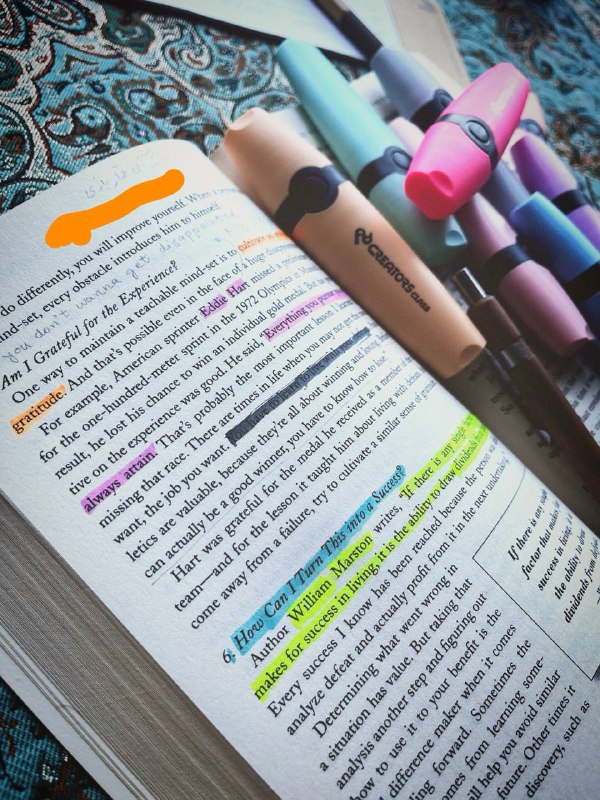 do differently, you will improve yourself. When a
ind-set, every obstacle introduces him to himself.
you don't wanna get disappointed
Am I Grateful for the Experience?
One way to maintain a teachable mind-set is to cultivate an
gratitude. And that's possible even in the face of a huge disappointment.
For example, American sprinter Eddie Hart missed a
for the one-hundred-meter sprint in the 1972 Olympics in
result, he lost his chance to win an individual gold medal. But
tive on the experience was good. He said, "Everything you
always attain. That's probably the most important lesson I
missing that race. There are times in life when you may not
want, the job you want.
letics are valuable, because they're all about winning and losing.
can actually be a good winner, you have to know how to lose."
Hart was grateful for the medal he received as a member
team—and for the lesson it taught him about living with
come away from a failure, try to cultivate a similar sense of
6. How Can I Turn This into a Success?
Author William Marston writes, "If there is any single
makes for success in living, it is the ability to draw dividends
Every success I know has been reached because the person was
analyze defeat and actually profit from it in the next undertaking.
Determining what went wrong in
a situation has value. But taking that
analysis another step and figuring out
how to use it to your benefit is the
l difference maker when it comes
ing forward. Sometimes the
mes from learning some-
ill help you avoid similar
future. Other times it
discovery, such as
If there is any
factor that makes
success in living, it
the ability to
dividends from
CREATORS
CLASS